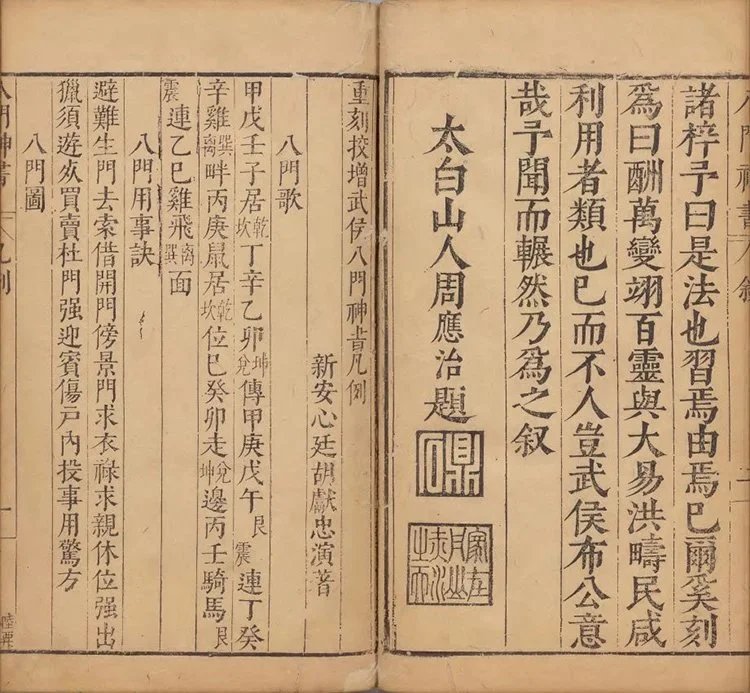 八門神書 叙
諸梓予曰是法也習焉由焉已爾奚刻
為曰酬萬變翊百靈與大易洪疇民咸
利用者類也已而不人豈武侯布公意
哉予聞而囅然乃為之叙
太白山人周應治題
重刻挍增武侯八門神書凡例
新安心廷胡獻忠演著
八門歌
甲戊壬子居乾坎丁辛乙卯坤兌傳甲庚戊午艮震連丁癸
辛雞巽離畔丙庚鼠居乾坎位巳癸卯走兌坤邊丙壬騎馬艮
震連乙巳雞飛離巽面
八門用事訣
避難生門去索借開門傍景門求衣祿求親休位强出
獵須遊死買賣杜門强迎賓傷戸內投事用驚方
八門圖
八門神書 凡例 一